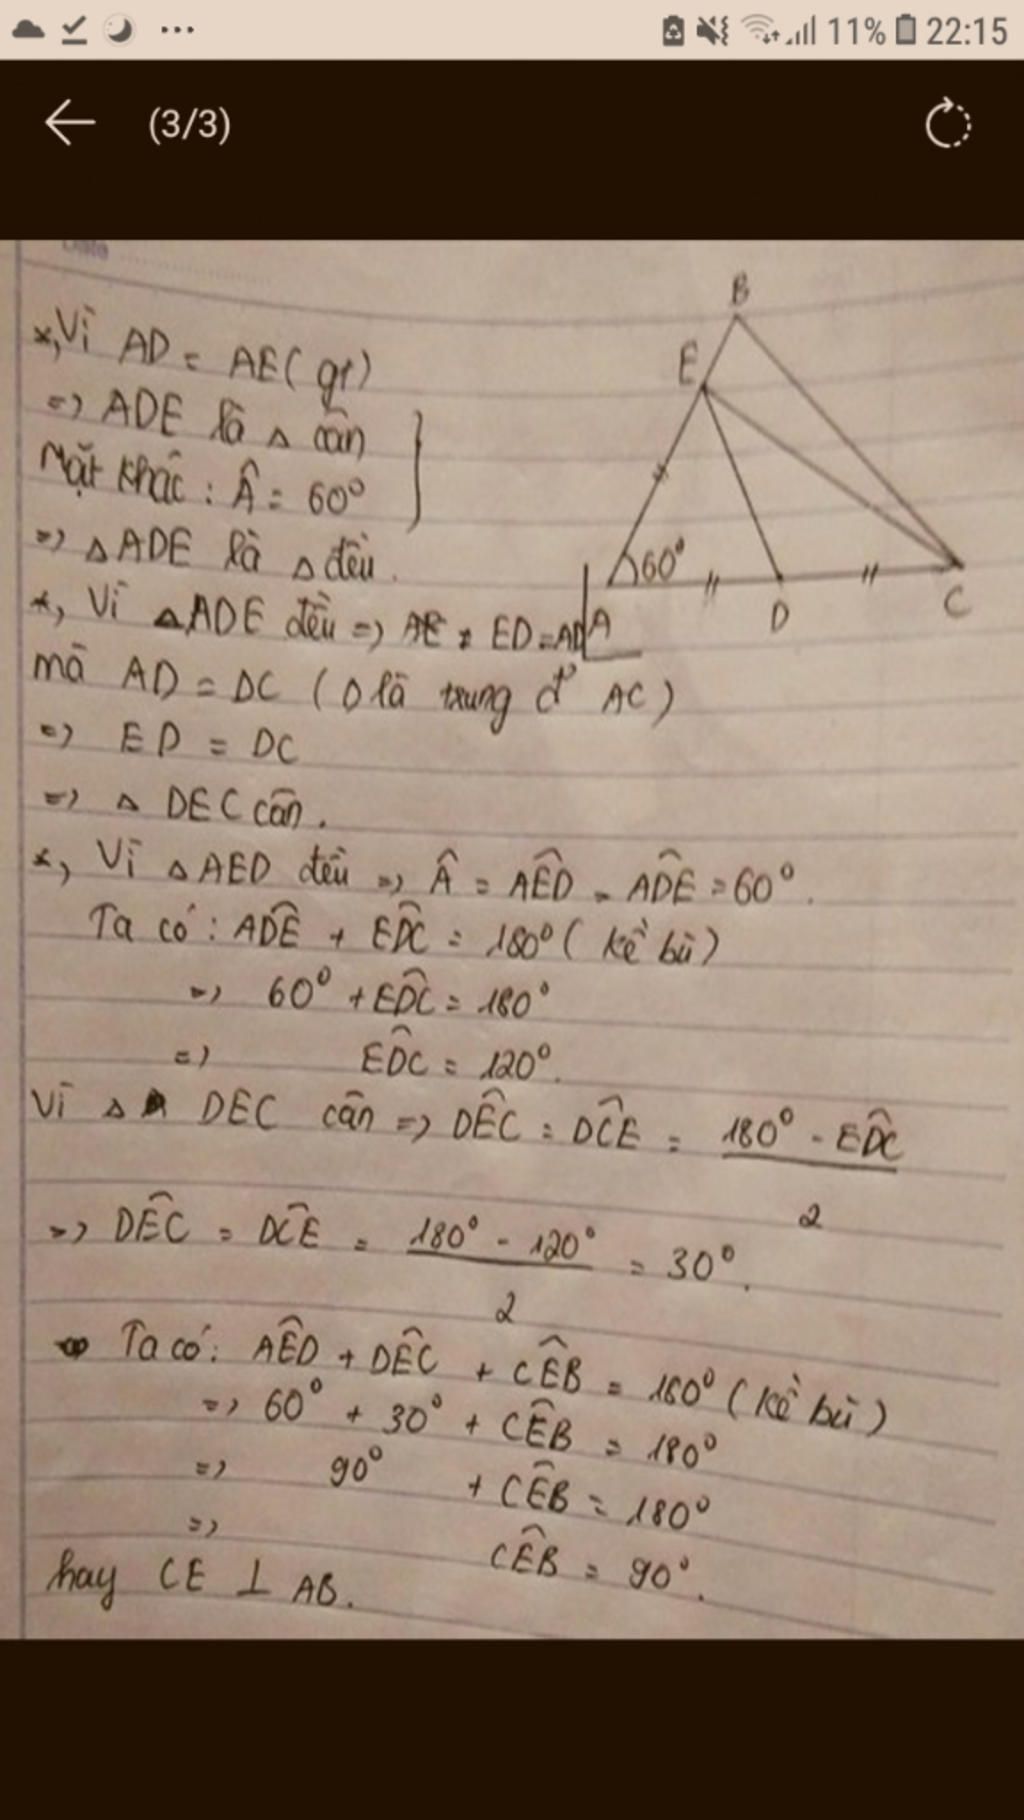 11% 22:15
(3/3)
Date
*, Vì AD = AE ( gt )
=> ADE là Δ cân
Mặt khác : Â = 60°
=> Δ ADE là Δ đều .
*, Vì Δ ADE đều => AE = ED = AD
mà AD = DC ( D là trung đ' AC )
=> ED = DC
=> Δ DEC cân .
*, Vì Δ AED đều => Â = AÊD = AD̂E = 60° .
Ta có : AD̂E + ED̂C = 180° ( kề bù )
=> 60° + ED̂C = 180°
=> ED̂C = 120° .
Vì Δ DEC cân => DÊC = DĈE = 180° - ED̂C
2
=> DÊC = DĈE = 180° - 120° = 30° .
2
Ta có : AÊD + DÊC + CÊB = 180° ( kề bù )
=> 60° + 30° + CÊB = 180°
=> 90° + CÊB = 180°
=> CÊB = 90° .
hay CE ⊥ AB .
B
E
60°
A
D
C